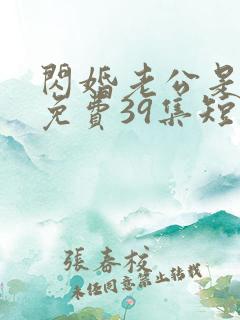 閃婚老公是
免費39集短
張春校
未經同意禁止轉載